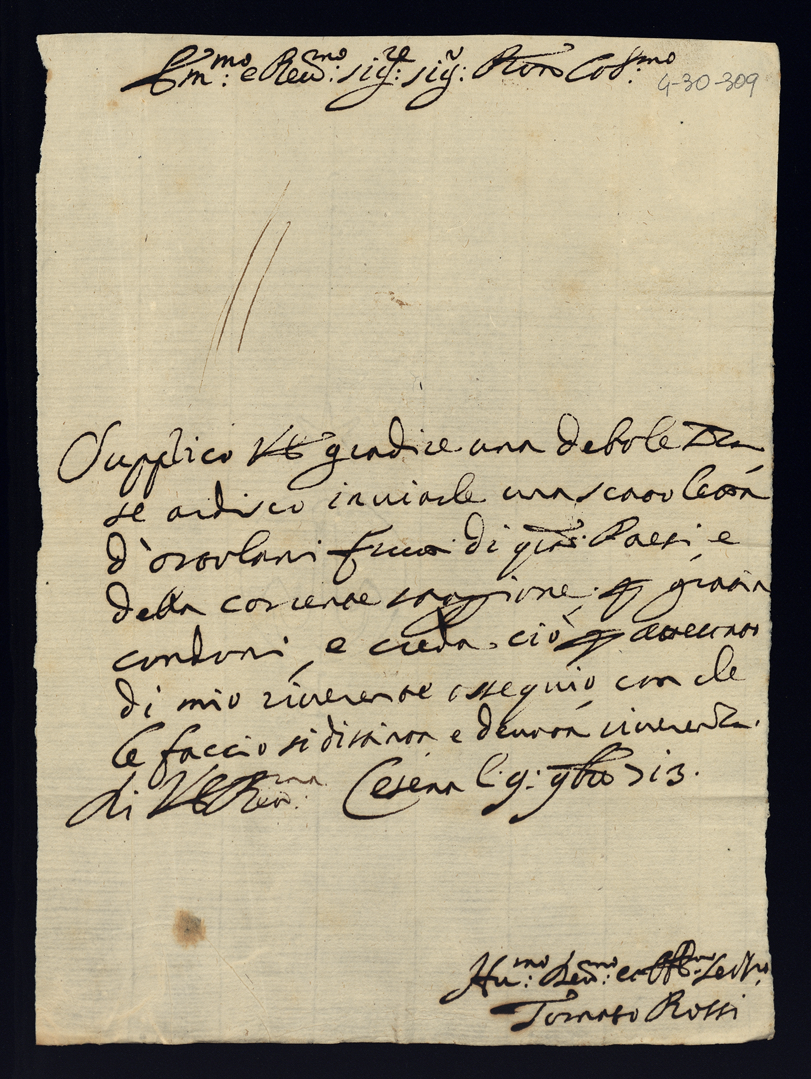 Em:mo e Rev:mo Sig:re Sig:r Pron Col:mo
4-30-309
Supplico VE gradire una debole
se ardisco inviarle una scatoletta
d'ortolani di qti Paesi e
della corrente staggione gratia
condoni, e creda ciò
di mio riverente ossequio con che
le faccio e devota riverenza.
di VE Rev:ma Cesena l: 9: 9bre 713.
Hu:mo Dev:mo et Obb:mo Servre
Tomaso Rossi